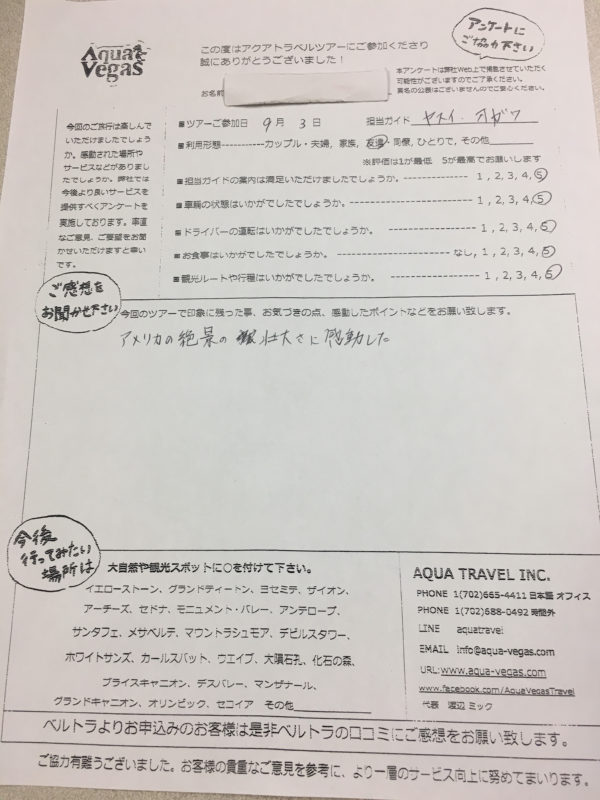 Aqua Vegas
この度はアクアトラベルツアーにご参加くださり
誠にありがとうございました！
アンケートに
ご協力下さい
本アンケートは弊社Web上で掲載させていただく
可能性がございますのでご了承ください。
実名の公表はございませんのでご安心ください。
お名前
今回のご旅行は楽しんで
いただけましたでしょう
か。感動された場所や
サービスなどがありまし
たでしょうか。弊社では
今後より良いサービスを
提供すべくアンケートを
実施しております。率直
なご意見、ご要望をお聞
かせいただけますと幸い
です。
■ツアーご参加日 9月 3日 担当ガイド ヤスイ、オガワ
■利用形態-----------カップル・夫婦, 家族, 友達・同僚, ひとりで, その他
※評価は1が最低 5が最高でお願いします
■担当ガイドの案内は満足いただけましたでしょうか。---------------- 1, 2, 3, 4, 5
■車輌の状態はいかがでしたでしょうか。------------------------- 1, 2, 3, 4, 5
■ドライバーの運転はいかがでしたでしょうか。-------------------- 1, 2, 3, 4, 5
■お食事はいかがでしたでしょうか。------------------------ なし, 1, 2, 3, 4, 5
■観光ルートや行程はいかがでしたでしょうか。------------------ 1, 2, 3, 4, 5
ご感想を
お聞かせ下さい
今回のツアーで印象に残った事、お気づきの点、感動したポイントなどをお願い致します。
アメリカの絶景の壮大さに感動した
今後
行ってみたい
場所は
大自然や観光スポットに○を付けて下さい。
イエローストーン、グランドティートン、ヨセミテ、ザイオン、
アーチーズ、セドナ、モニュメント・バレー、アンテロープ、
サンタフェ、メサベルテ、マウントラシュモア、デビルスタワー、
ホワイトサンズ、カールスバット、ウエイブ、大隕石孔、化石の森、
ブライスキャニオン、デスバレー、マンザナール、
グランドキャニオン、オリンピック、セコイア その他
AQUA TRAVEL INC.
PHONE 1(702)665-4411 日本語 オフィス
PHONE 1(702)688-0492 時間外
LINE aquatravel
EMAIL info@aqua-vegas.com
URL:www.aqua-vegas.com
www.facebook.com/AquaVegasTravel
代表 渡辺 ミック
ベルトラよりお申込みのお客様は是非ベルトラの口コミにご感想をお願い致します。
ご協力有難うございました。お客様の貴重なご意見を参考に、より一層のサービス向上に努めてまいります。